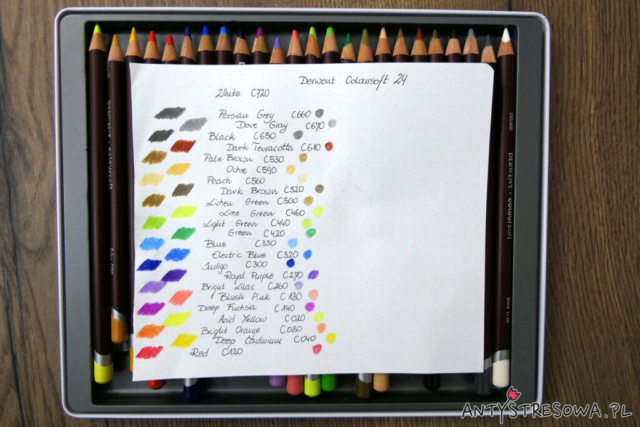 Derwent Coloursoft 24
White C720
Persian Grey C660
Dove Gray C670
Black C650
Dark Terracotta C610
Pale Brown C530
Ochre C590
Peach C560
Dark Brown C520
Lichen Green C500
Lime Green C460
Light Green C440
Green C420
Blue C330
Electric Blue C320
Indygo C300
Royal Purple C270
Bright Lilac C260
Blush Pink C180
Deep Fuchsia C140
Acid Yellow C020
Bright Orange C080
Deep Cadmium C040
Red C120
DERWENT COLOURSOFT
ANTYSTRESOWA.PL